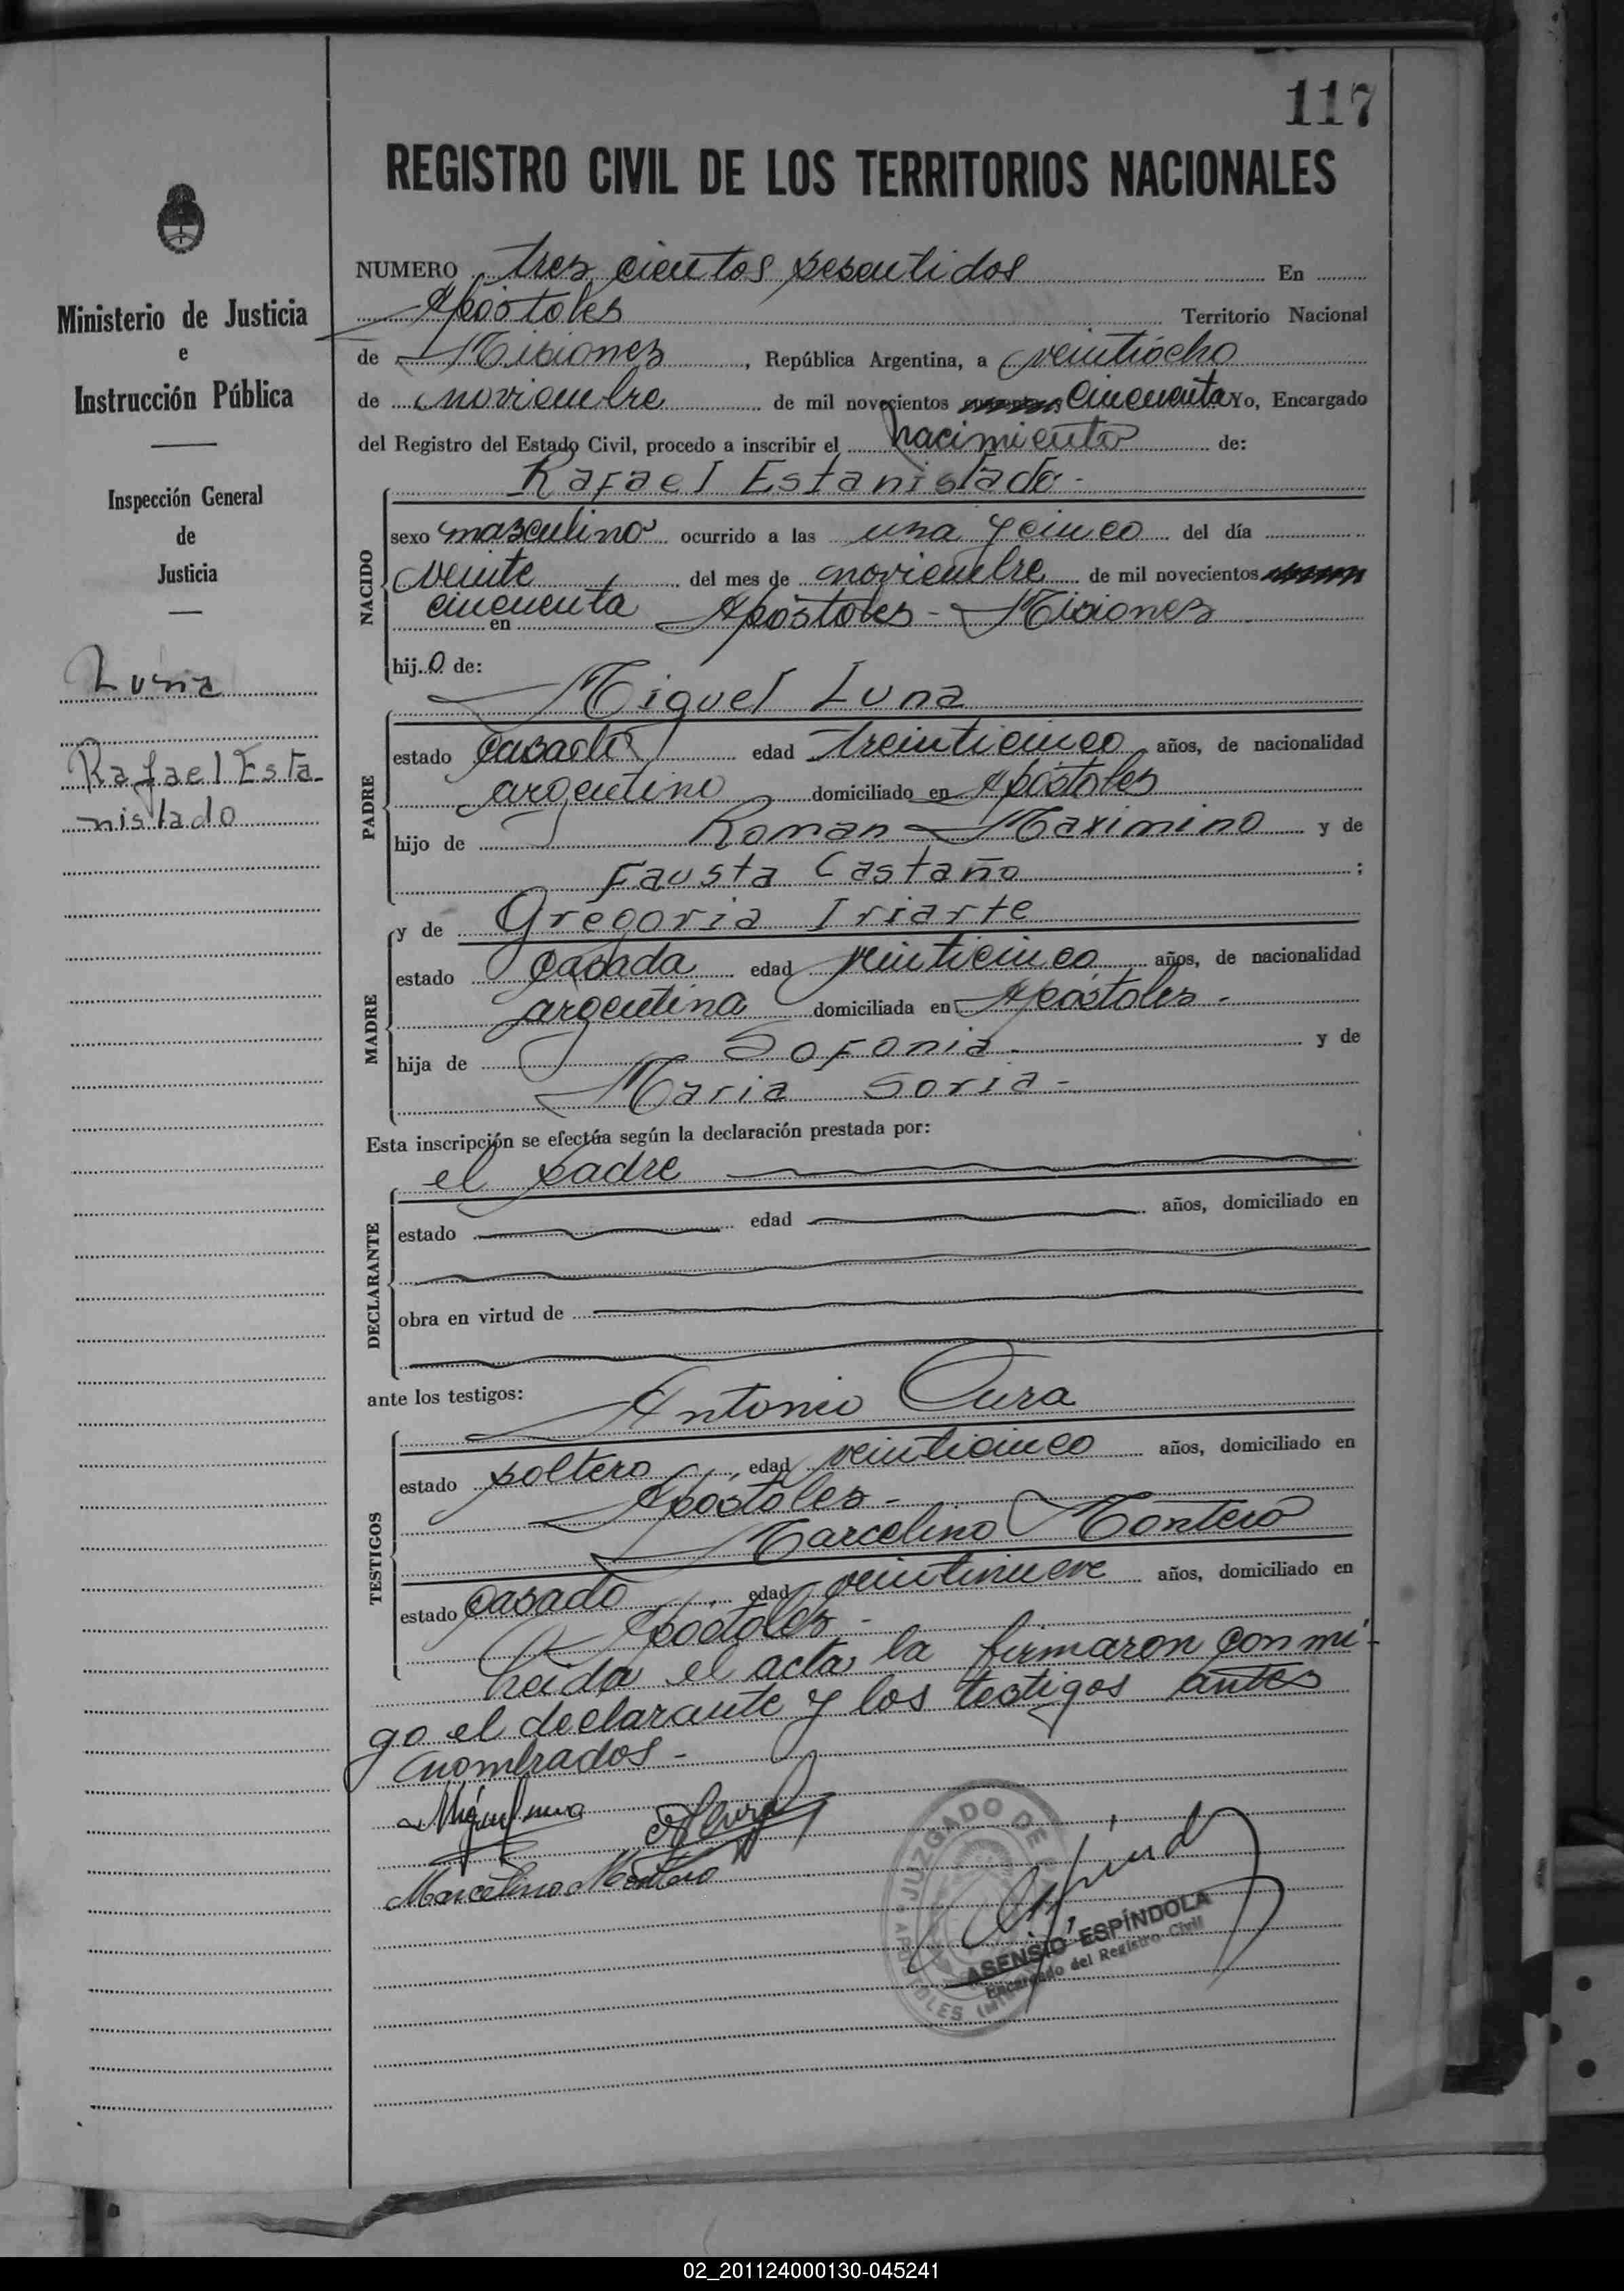 117
REGISTRO CIVIL DE LOS TERRITORIOS NACIONALES
Ministerio de Justicia
e
Instrucción Pública
Inspección General
de
Justicia
Luna
Rafael Esta-
nislado
NUMERO tres cientos sesentidos En
Apóstoles Territorio Nacional
de Misiones, República Argentina, a veintiocho
de noviembre de mil novecientos cincuenta Yo, Encargado
del Registro del Estado Civil, procedo a inscribir el nacimiento de:
Rafael Estanislado-
NACIDO
sexo masculino ocurrido a las una y cinco del día
veinte del mes de noviembre de mil novecientos
cincuenta en Apóstoles - Misiones
hij.o de:
Miguel Luna
PADRE
estado casado edad treinticinco años, de nacionalidad
argentino domiciliado en Apóstoles
hijo de Roman Maximino y de
Fausta Castaño ;
y de Gregoria Iriarte
MADRE
estado casada edad veinticinco años, de nacionalidad
argentina domiciliada en Apóstoles -
hija de Sofonia - y de
Maria Soria -
Esta inscripción se efectúa según la declaración prestada por:
el padre
DECLARANTE
estado edad años, domiciliado en
obra en virtud de
ante los testigos: Antonio Cura
TESTIGOS
estado soltero edad veinticinco años, domiciliado en
Apóstoles -
Marcelino Montero
estado casado edad veintinueve años, domiciliado en
Apóstoles -
Leida el acta la firmaron conmi-
go el declarante y los testigos antes
nombrados -
Miguel Luna
Marcelino Montero
JUZGADO DE
ASENSIO ESPÍNDOLA
Encargado del Registro Civil
02_201124000130-045241